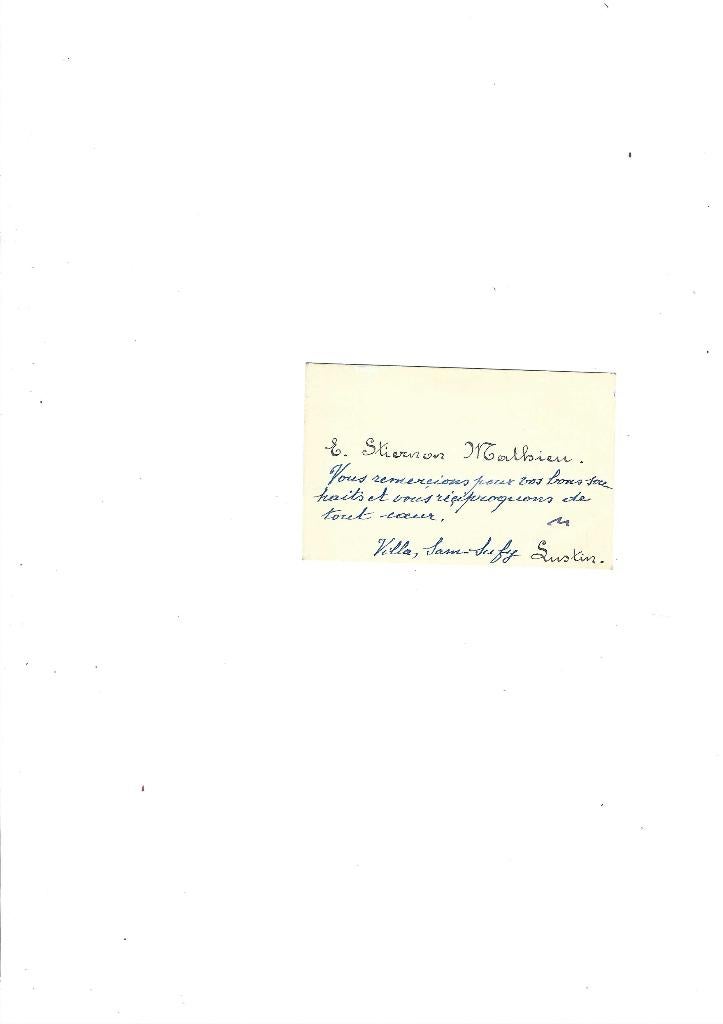 E. Stiernon Mathieu.
Vous remercions pour vos bons sou
haits et vous réciproquons de
tout cœur.
Villa, Sam-Sufy Lustin.